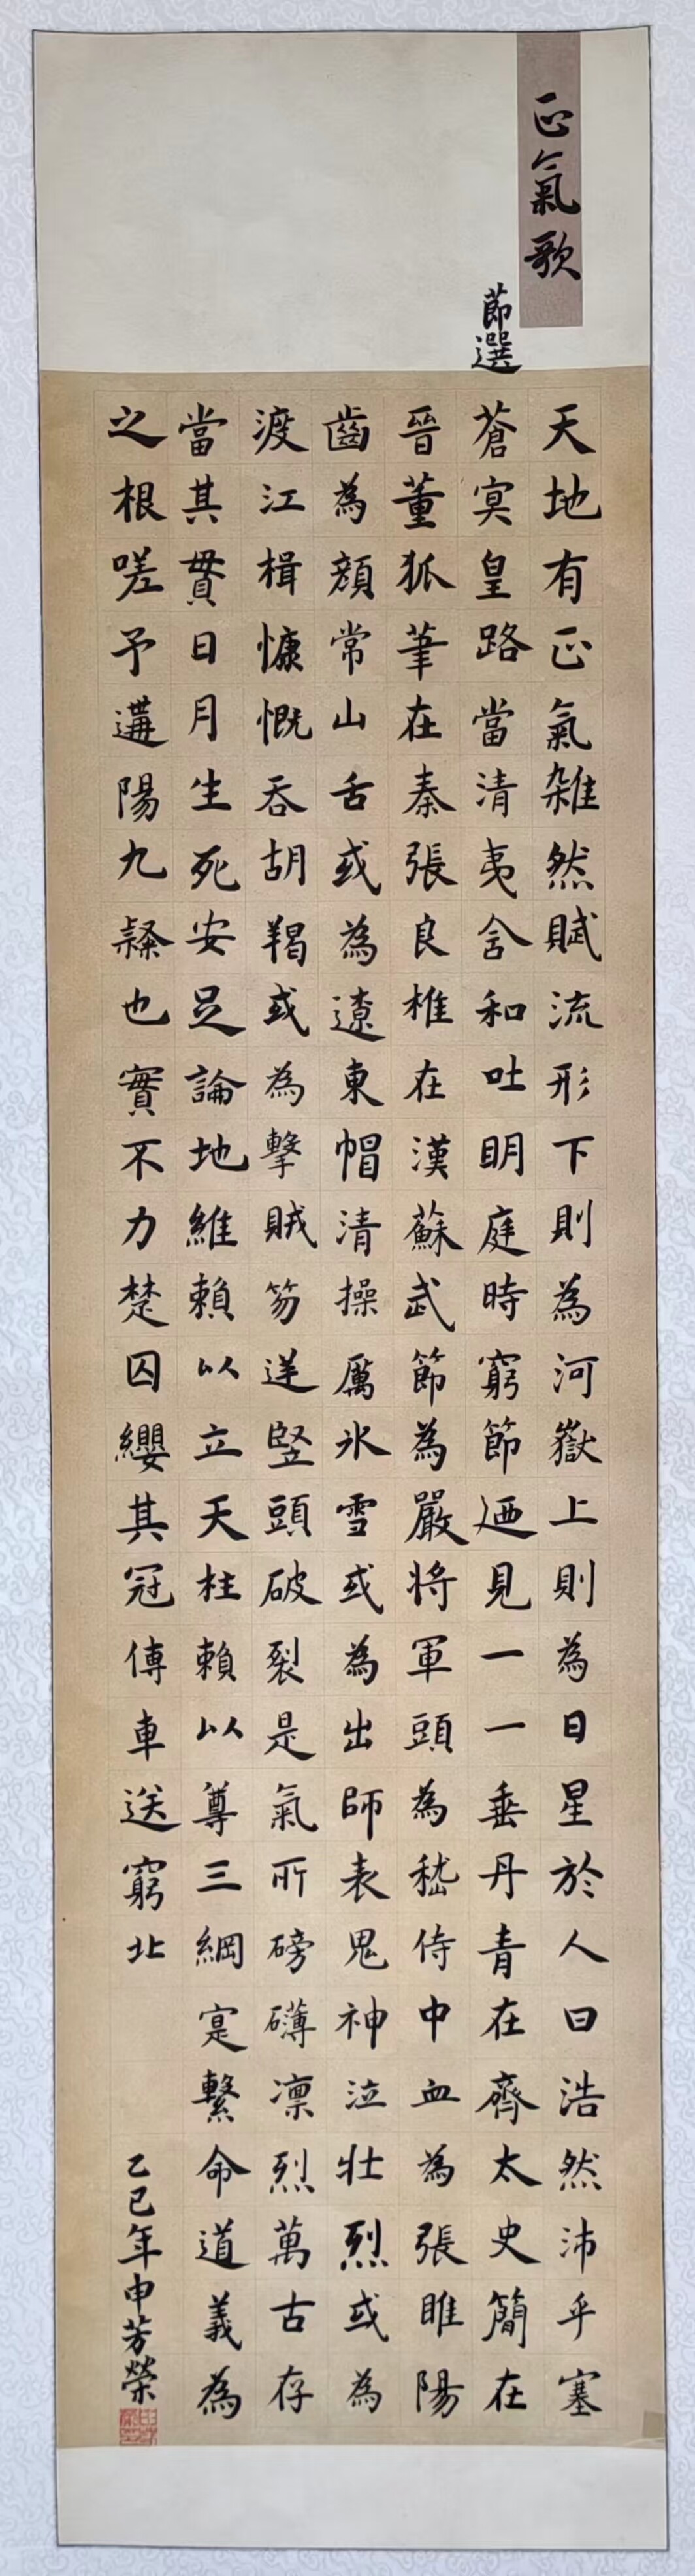 正氣歌
節選
天地有正氣雜然賦流形下則為河嶽上則為日星於人曰浩然沛乎塞
蒼冥皇路當清夷含和吐明庭時窮節迺見一一垂丹青在齊太史簡在
晉董狐筆在秦張良椎在漢蘇武節為嚴將軍頭為嵇侍中血為張睢陽
齒為顏常山舌或為遼東帽清操厲氷雪或為出師表鬼神泣壯烈或為
渡江楫慷慨吞胡羯或為擊賊笏逆豎頭破裂是氣所磅礴凜烈萬古存
當其貫日月生死安足論地維賴以立天柱賴以尊三綱寔繫命道義為
之根嗟予遘陽九隸也實不力楚囚纓其冠傳車送窮北
乙巳年申芳榮